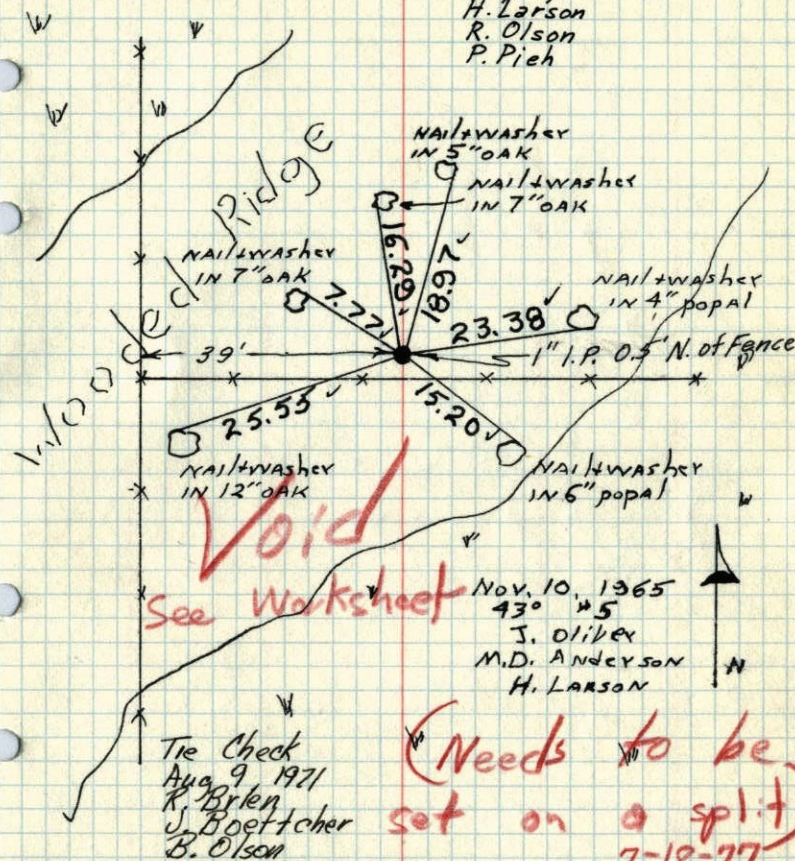 H. Larson
R. Olson
P. Pieh
NAIL+WASHER
IN 5" OAK
NAIL+WASHER
IN 7" OAK
Wooded Ridge
NAIL+WASHER
IN 7" OAK
16.29
18.97
7.77
23.38
NAIL+WASHER
IN 4" POPAL
39'
1" I.P. 0.5' N. of Fence
25.55
15.20
NAIL+WASHER
IN 12" OAK
NAIL+WASHER
IN 6" POPAL
Void
See Worksheet
Nov. 10, 1965
43° #5
J. Oliver
M.D. Anderson
H. LARSON
N
Tie Check
Aug 9 1971
R. Brien
J. Boettcher
B. Olson
(Needs to be
set on a split)
7-18-77